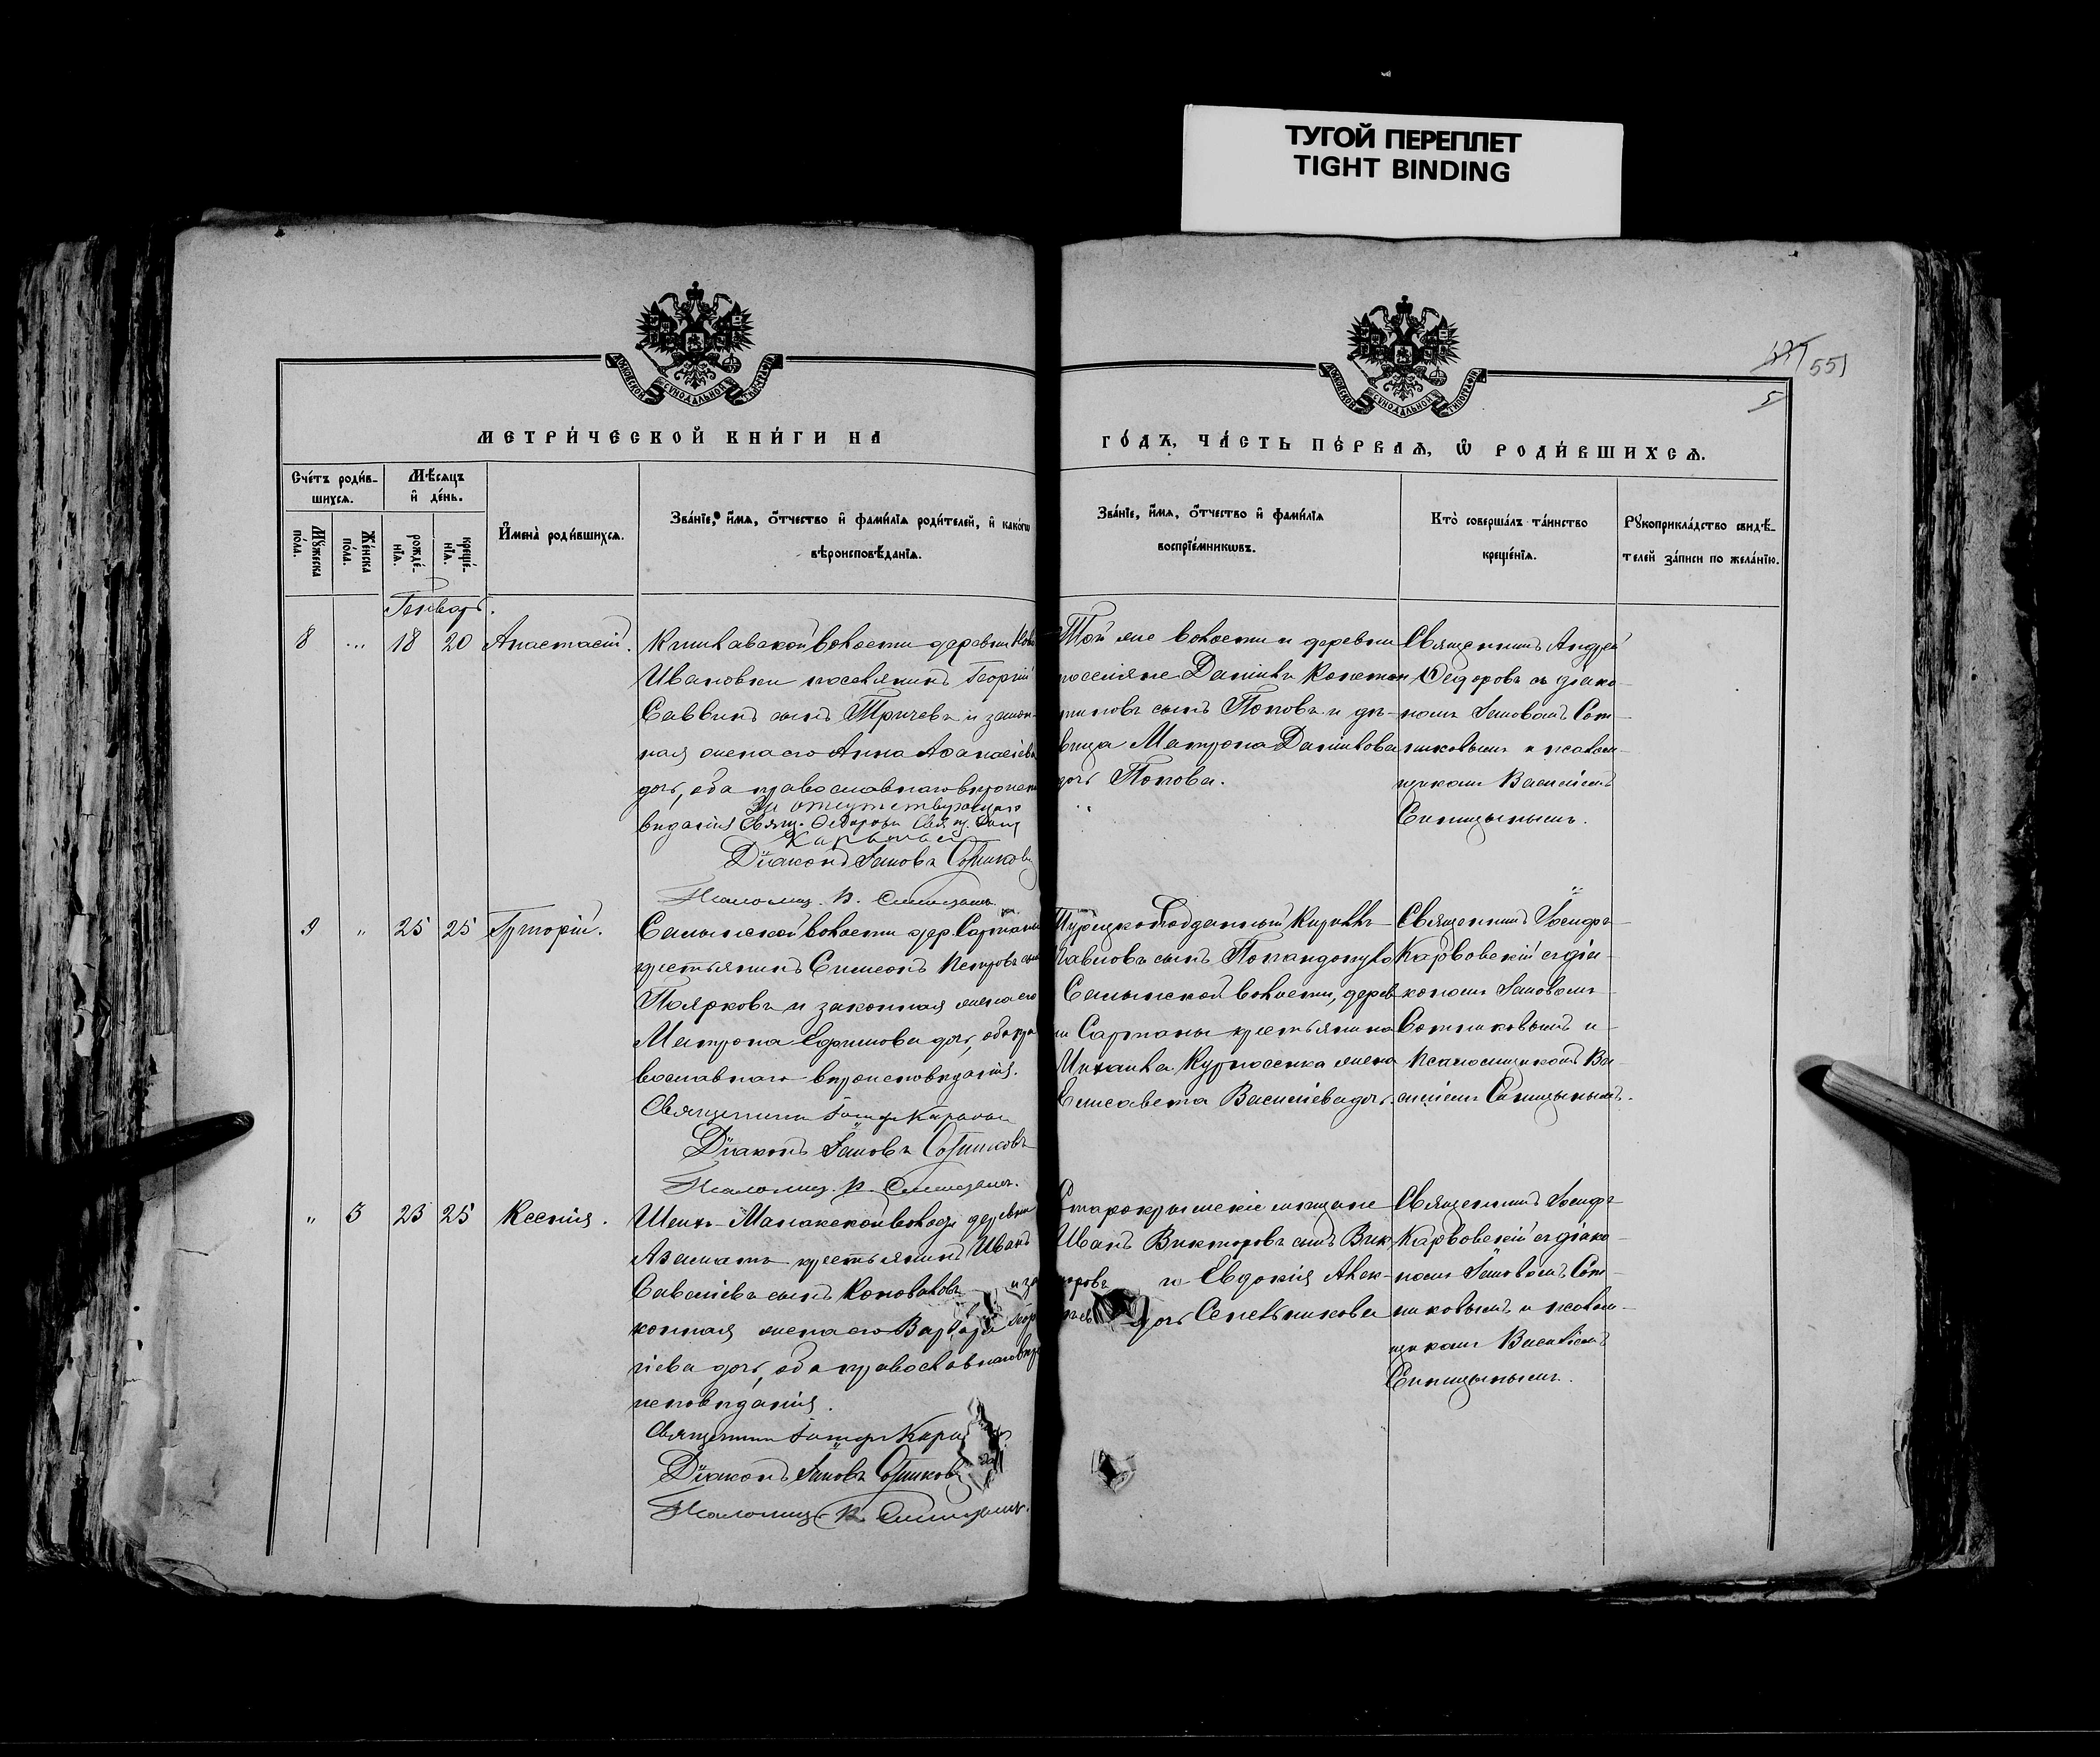 ТУГОЙ ПЕРЕПЛЕТ
TIGHT BINDING
МОСКОВСКОЙ СУНОДАЛЬНОЙ ТИПОГРАФІИ
МОСКОВСКОЙ СУНОДАЛЬНОЙ ТИПОГРАФІИ
551
5
МЕТРИ́ЧЕСКОЙ КНИ́ГИ НА
ГО́ДЪ, ЧА́СТЬ ПЕ́РВАЯ, Ѡ҆ РОДИ́ВШИХСЯ.
Сче́тъ роди́в-
шихся.
Мѣ́сяцъ
и҆ де́нь.
Му́жеска
по́ла.
Же́нска
по́ла.
рожде́-
нія.
креще́-
нія.
И҆мена̀ роди́вшихся.
Зва́ніе, и҆́мя, ѻ҆́тчество и҆ фами́лія роди́телей, и҆ како́гѡ
вѣроисповѣ́данія.
Зва́ніе, и҆́мя, ѻ҆́тчество и҆ фами́лія
воспріе́мникѡвъ.
Кто̀ соверша́лъ та́инство
креще́нія.
Рꙋкоприкла́дство свидѣ́-
телей за́писи по жела́нію.
Генварь.
8 " 18 20 Анастасій.
волости деревни
Ивановки поселянинъ Георгій
Саввинъ сынъ Тричевъ и закон-
ная жена его Анна Аѳанасіева
дочь, оба православнаго вѣроиспо
За отсутствующаго
вѣданія Свящ. Ѳедорова Свящ.
Діаконъ Іаковъ Сотниковъ
Псаломщ. В. Синицынъ
Той же волости и деревни
поселяне Даніилъ Констан
тиновъ сынъ Поповъ и дѣ-
вица Матрона Даніилова
дочь Попова.
Священникъ Андрей
Ѳедоровъ съ діако-
номъ Іаковомъ Сот-
никовымъ и псалом-
щикомъ Василіемъ
Синицынымъ.
9 " 25 25 Григорій.
Салынской волости дер. Сартаны
крестьянинъ Симеонъ Петровъ сынъ
Поярковъ и законная жена его
Матрона Ефимова дочь, оба пра
вославнаго вѣроисповѣданія.
Священникъ Іосифъ Карвовскій
Діаконъ Іаковъ Сотниковъ
Псаломщ. В. Синицынъ.
Турецкоподданный Кириллъ
Павловъ сынъ Попандопуло
Салынской волости, дерев
ни Сартаны крестьянина
Михаила Курносенка жена
Елисавета Василіева дочь.
Священникъ Іосифъ
Карвовскій съ діа-
кономъ Іаковомъ
Сотниковымъ и
псаломщикомъ Ва-
силіемъ Синицынымъ.
" 3 23 25 Ксенія.
Шейхъ-Манакской волости деревни
Азаматъ крестьянинъ Иванъ
Савеліевъ сынъ Коноваловъ и за
конная жена его Варвара Геор
гіева дочь, оба православнаго вѣро
исповѣданія.
Священникъ Іосифъ Карв
Діаконъ Іаковъ Сотниковъ
Псаломщ. В. Синицынъ.
Старокрымскіе мѣщане
Иванъ Викторовъ сынъ Вик
торовъ и Евдокія Алек-
дочь Сенельникова
Священникъ Іосифъ
Карвовскій съ діако-
номъ Іаковомъ Сот-
никовымъ и псалом-
щикомъ Василіемъ
Синицынымъ.